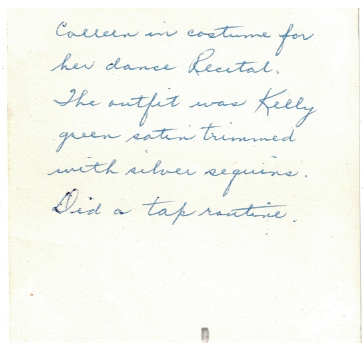 Colleen in costume for
her dance Recital.
The outfit was Kelly
green satin trimmed
with silver sequins.
Did a tap routine.